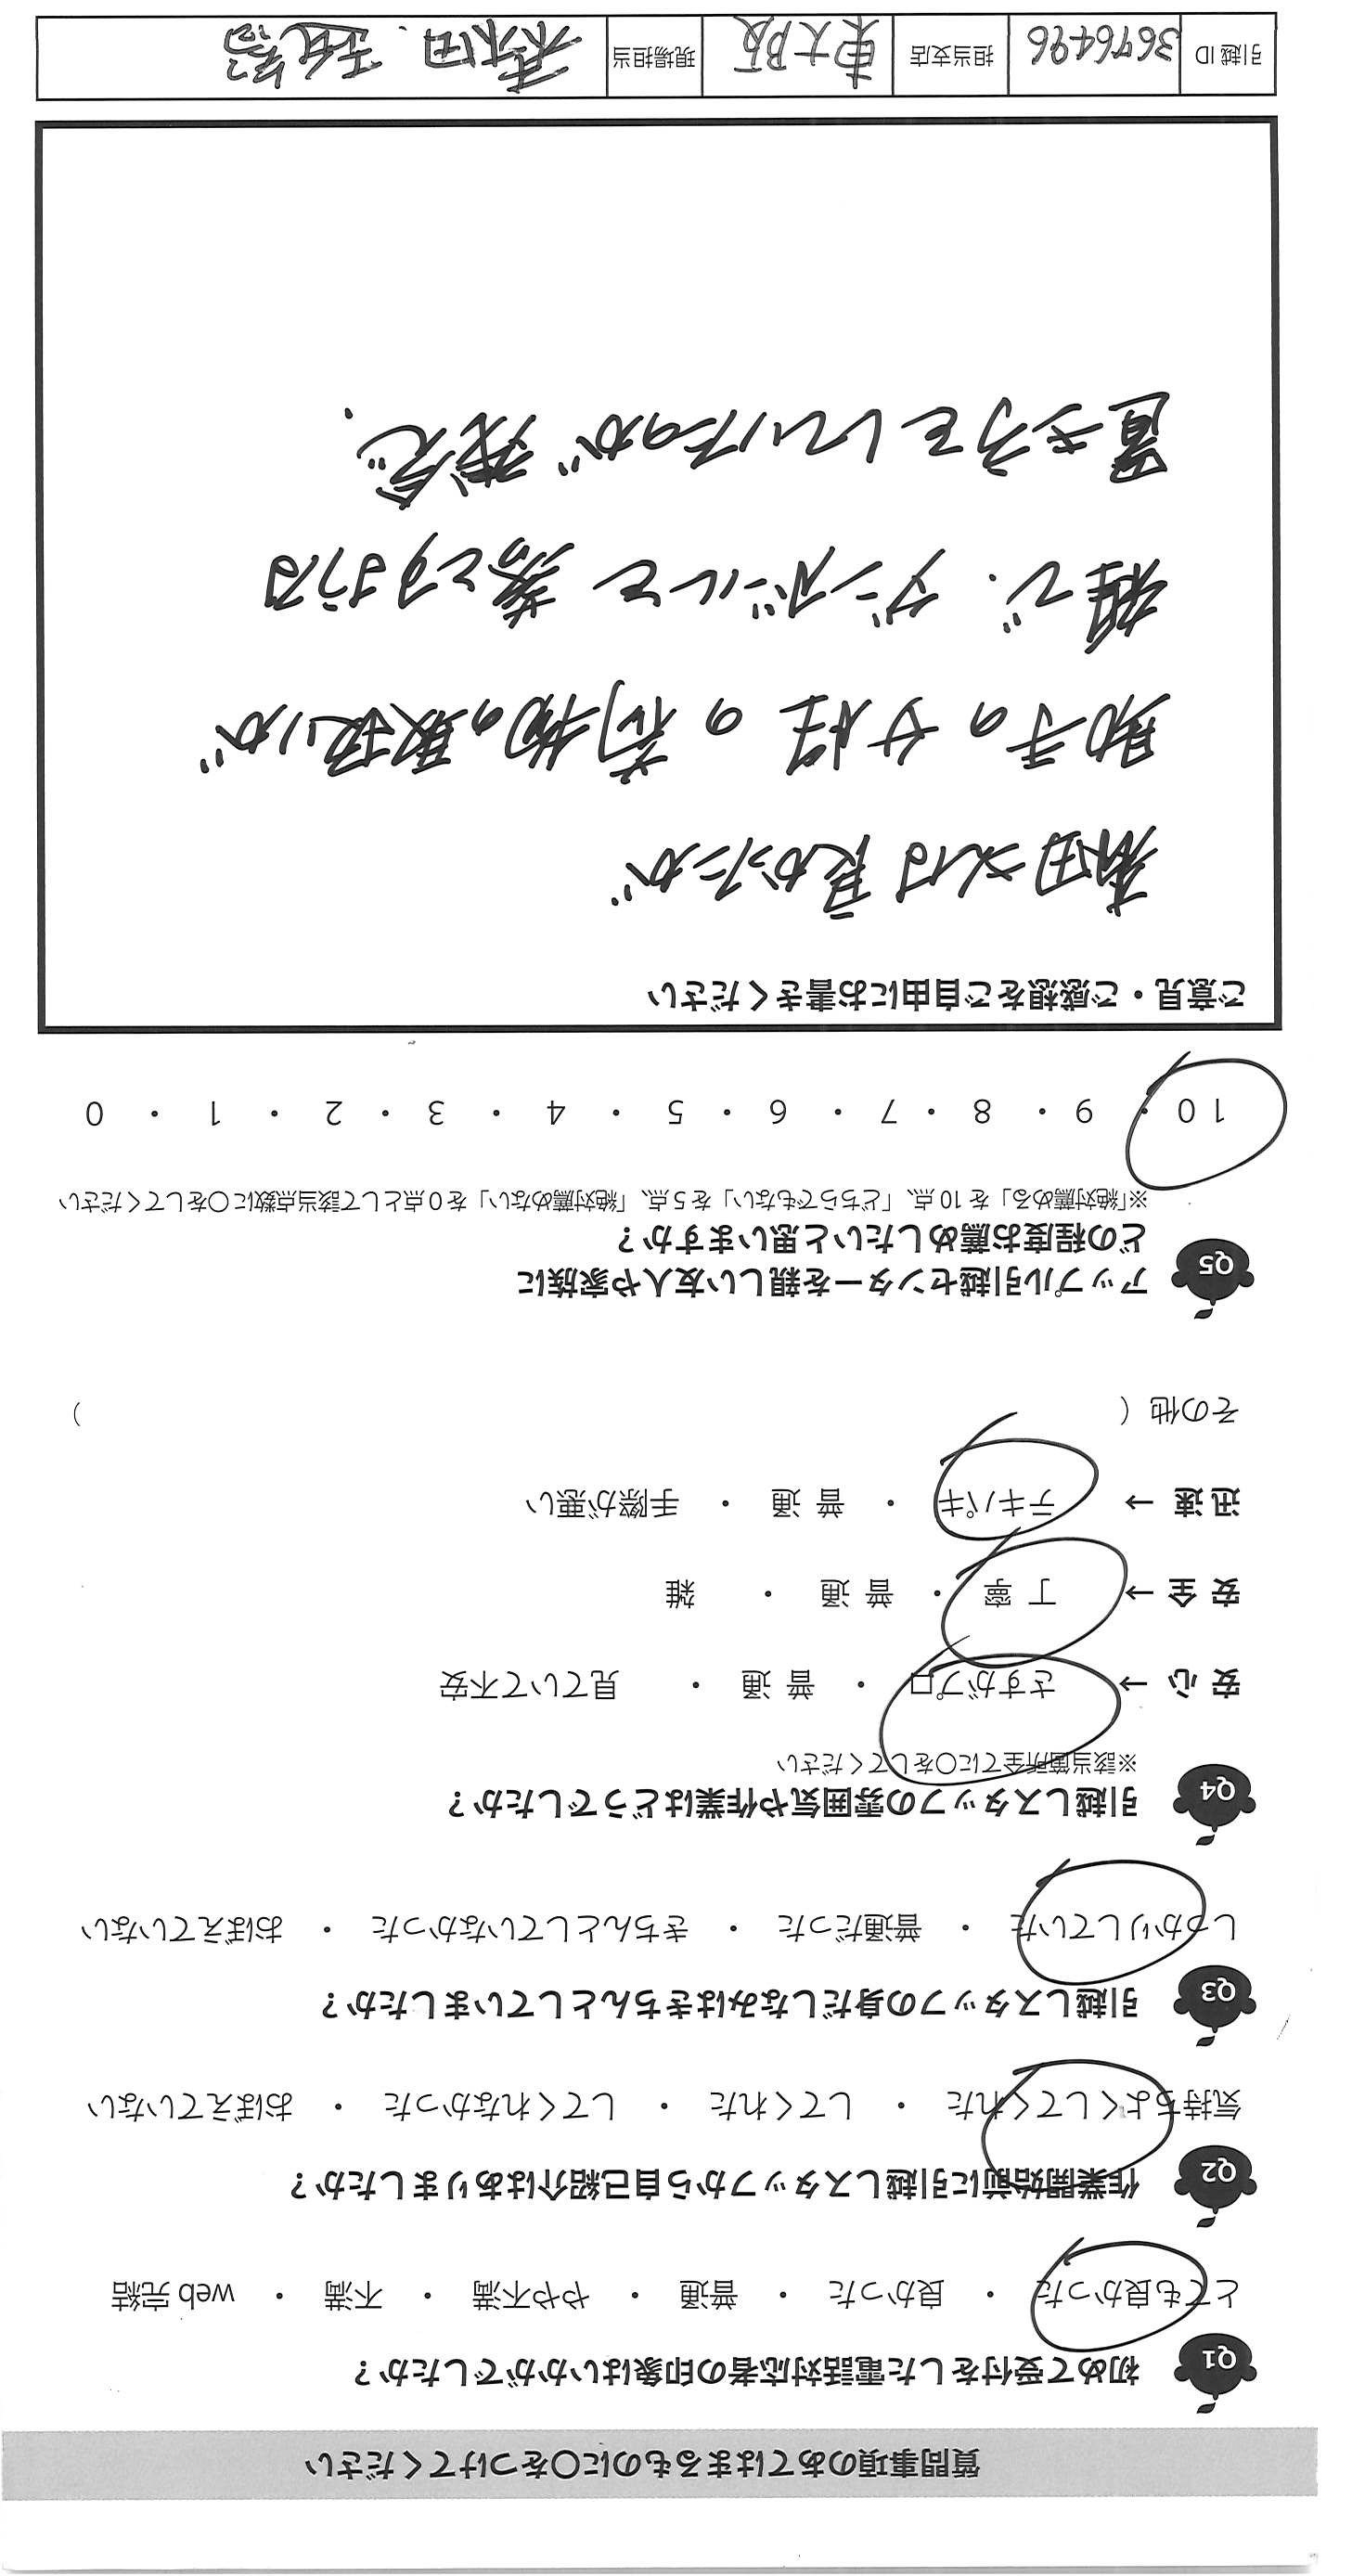 質問事項のあてはまるものに〇をつけてください
Q1 初めて受付をした電話対応者の印象はいかがでしたか?
とても良かった ・ 良かった ・ 普通 ・ やや不満 ・ 不満 ・ web 完結
Q2 作業開始前に引越しスタッフから自己紹介はありましたか?
気持ちよくしてくれた ・ してくれた ・ してくれなかった ・ おぼえていない
Q3 引越しスタッフの身だしなみはきちんとしていましたか?
しっかりしていた ・ 普通だった ・ きちんとしていなかった ・ おぼえていない
Q4 引越しスタッフの雰囲気や作業はどうでしたか?
※該当箇所全てに〇をしてください
安 心 → さすがプロ ・ 普 通 ・ 見ていて不安
安 全 → 丁 寧 ・ 普 通 ・ 雑
迅 速 → テキパキ ・ 普 通 ・ 手際が悪い
その他 ( )
Q5 アップル引越センターを親しい友人や家族に
どの程度お薦めしたいと思いますか?
※「絶対薦める」を 10 点、「どちらでもない」を 5 点、「絶対薦めない」を 0 点として該当点数に〇をしてください
10 ・ 9 ・ 8 ・ 7 ・ 6 ・ 5 ・ 4 ・ 3 ・ 2 ・ 1 ・ 0
ご意見・ご感想をご自由にお書きください
森田さんは良かったが
助手の女性の荷物の取扱いが
雑で、ダンボールを落とすような
置き方をしていたのが残念、
引越 ID 3676496 担当支店 東大阪 現場担当 森田、